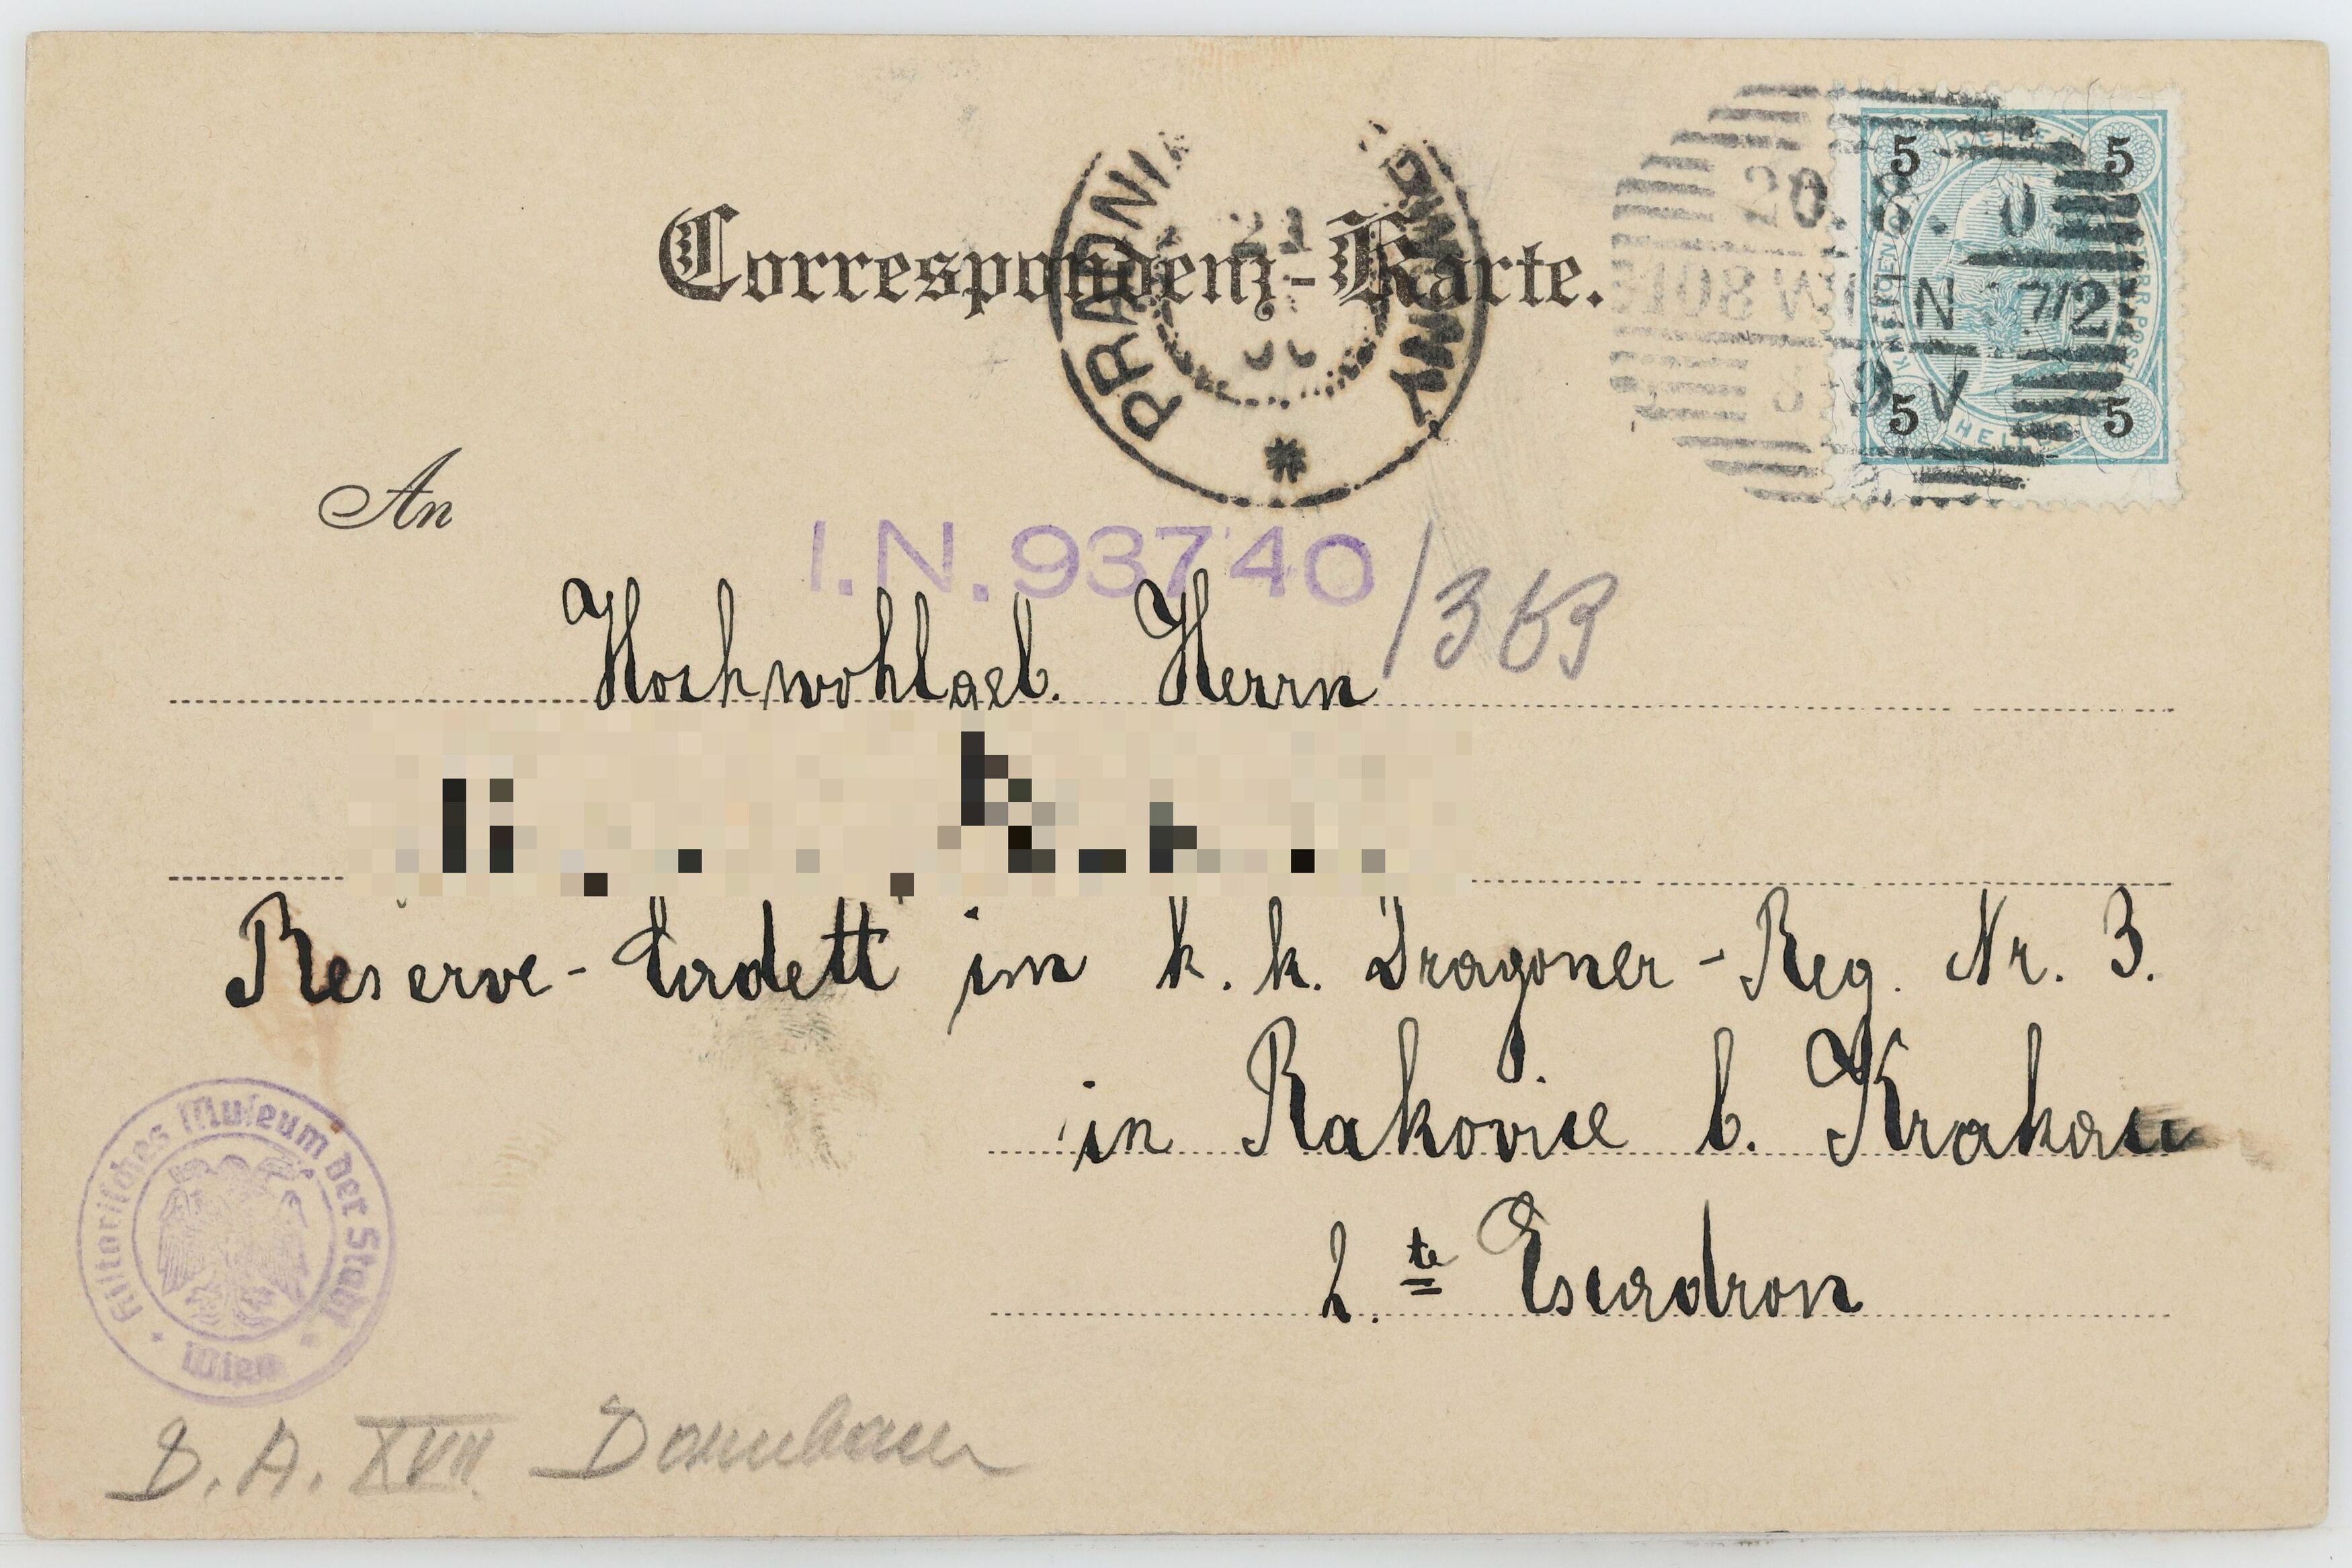 Correspondenz-Karte.
PRĄDNIK
21
20. 8. 0
WIEN 7/2
8-9 V
5 5
5 5
HELLER
An
I.N. 93740 /363
Hochwohlgeb. Herrn
Reserve-Cadett im k. k. Dragoner-Reg. Nr. 3.
in Rakovice b. Krakau
2.te Escadron
Historisches Museum der Stadt
Wien
B. A. XVII